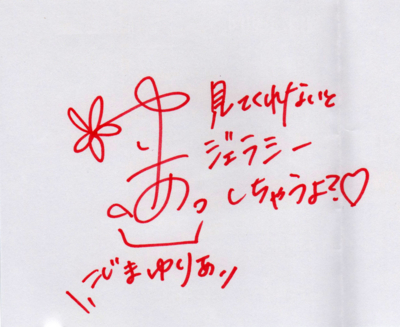 見てくれないと
ジェラシー
しちゃうよ?♡
\\こじまゆりあ//